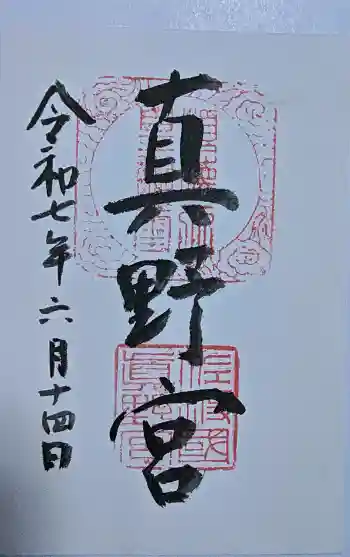 真野宮
令和七年六月十四日